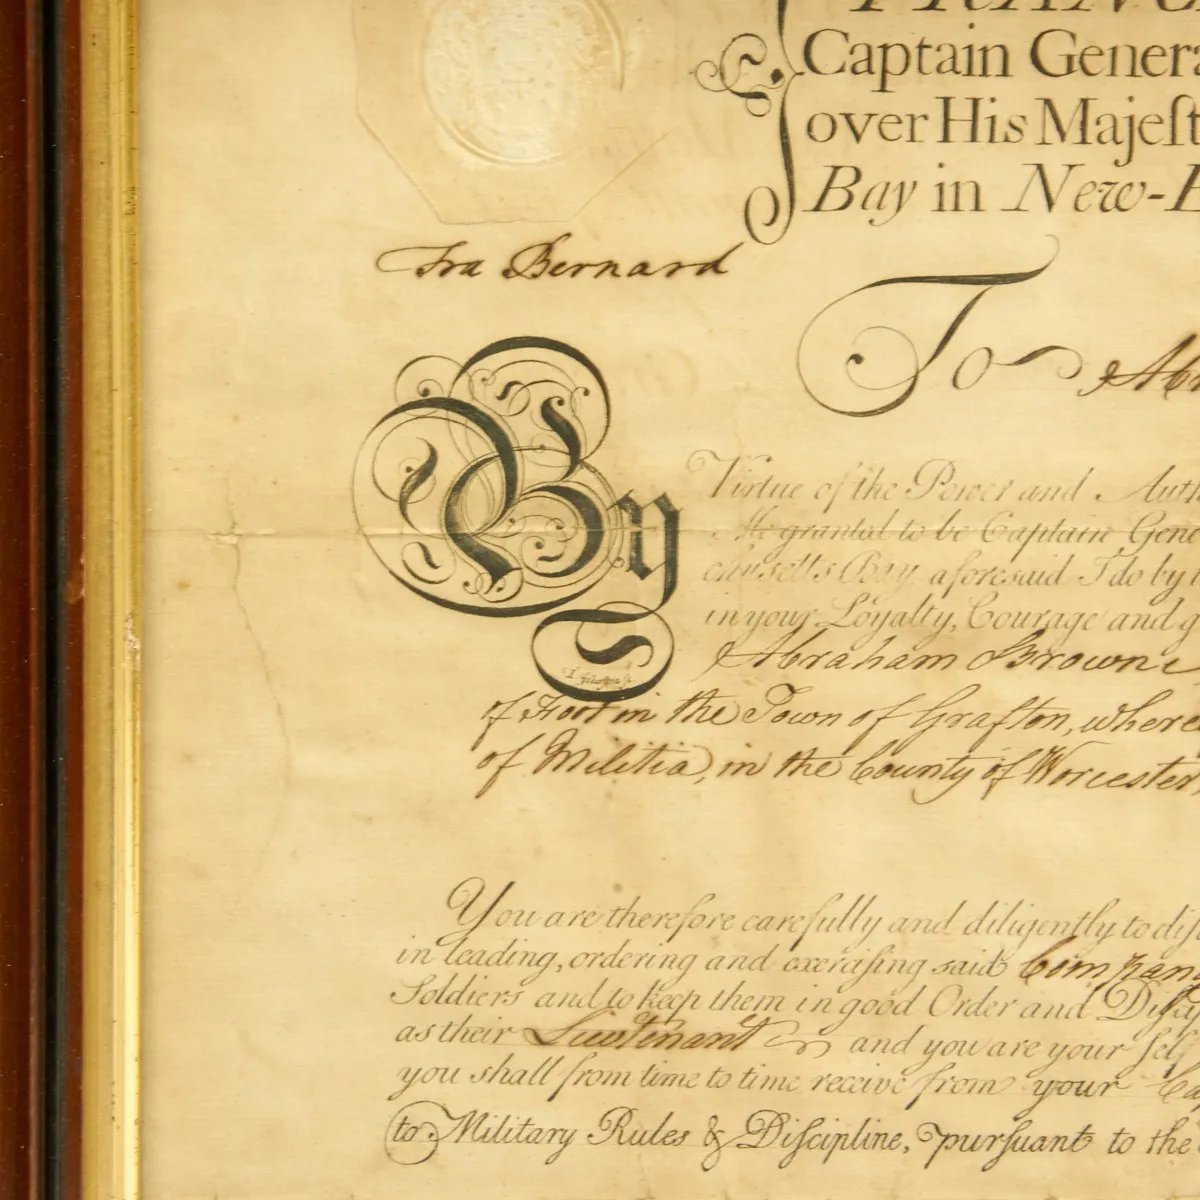 FRANC
Captain Genera
over His Majeſt
Bay in New-E
Fra Bernard
To Abr
By Virtue of the Power and Auth
Me granted to be Captain Gene
chusetts Bay aforesaid I do by t
in your Loyalty, Courage and g
Abraham Browne
of Foot in the Town of Grafton, where
of Militia, in the County of Worcester,
You are therefore carefully and diligently to diſ
in leading, ordering and exerciſing said Company
Soldiers and to keep them in good Order and Diſcip
as their Lieutenant and you are your ſelf
you shall from time to time receive from your Ca
to Military Rules & Diſcipline, purſuant to the